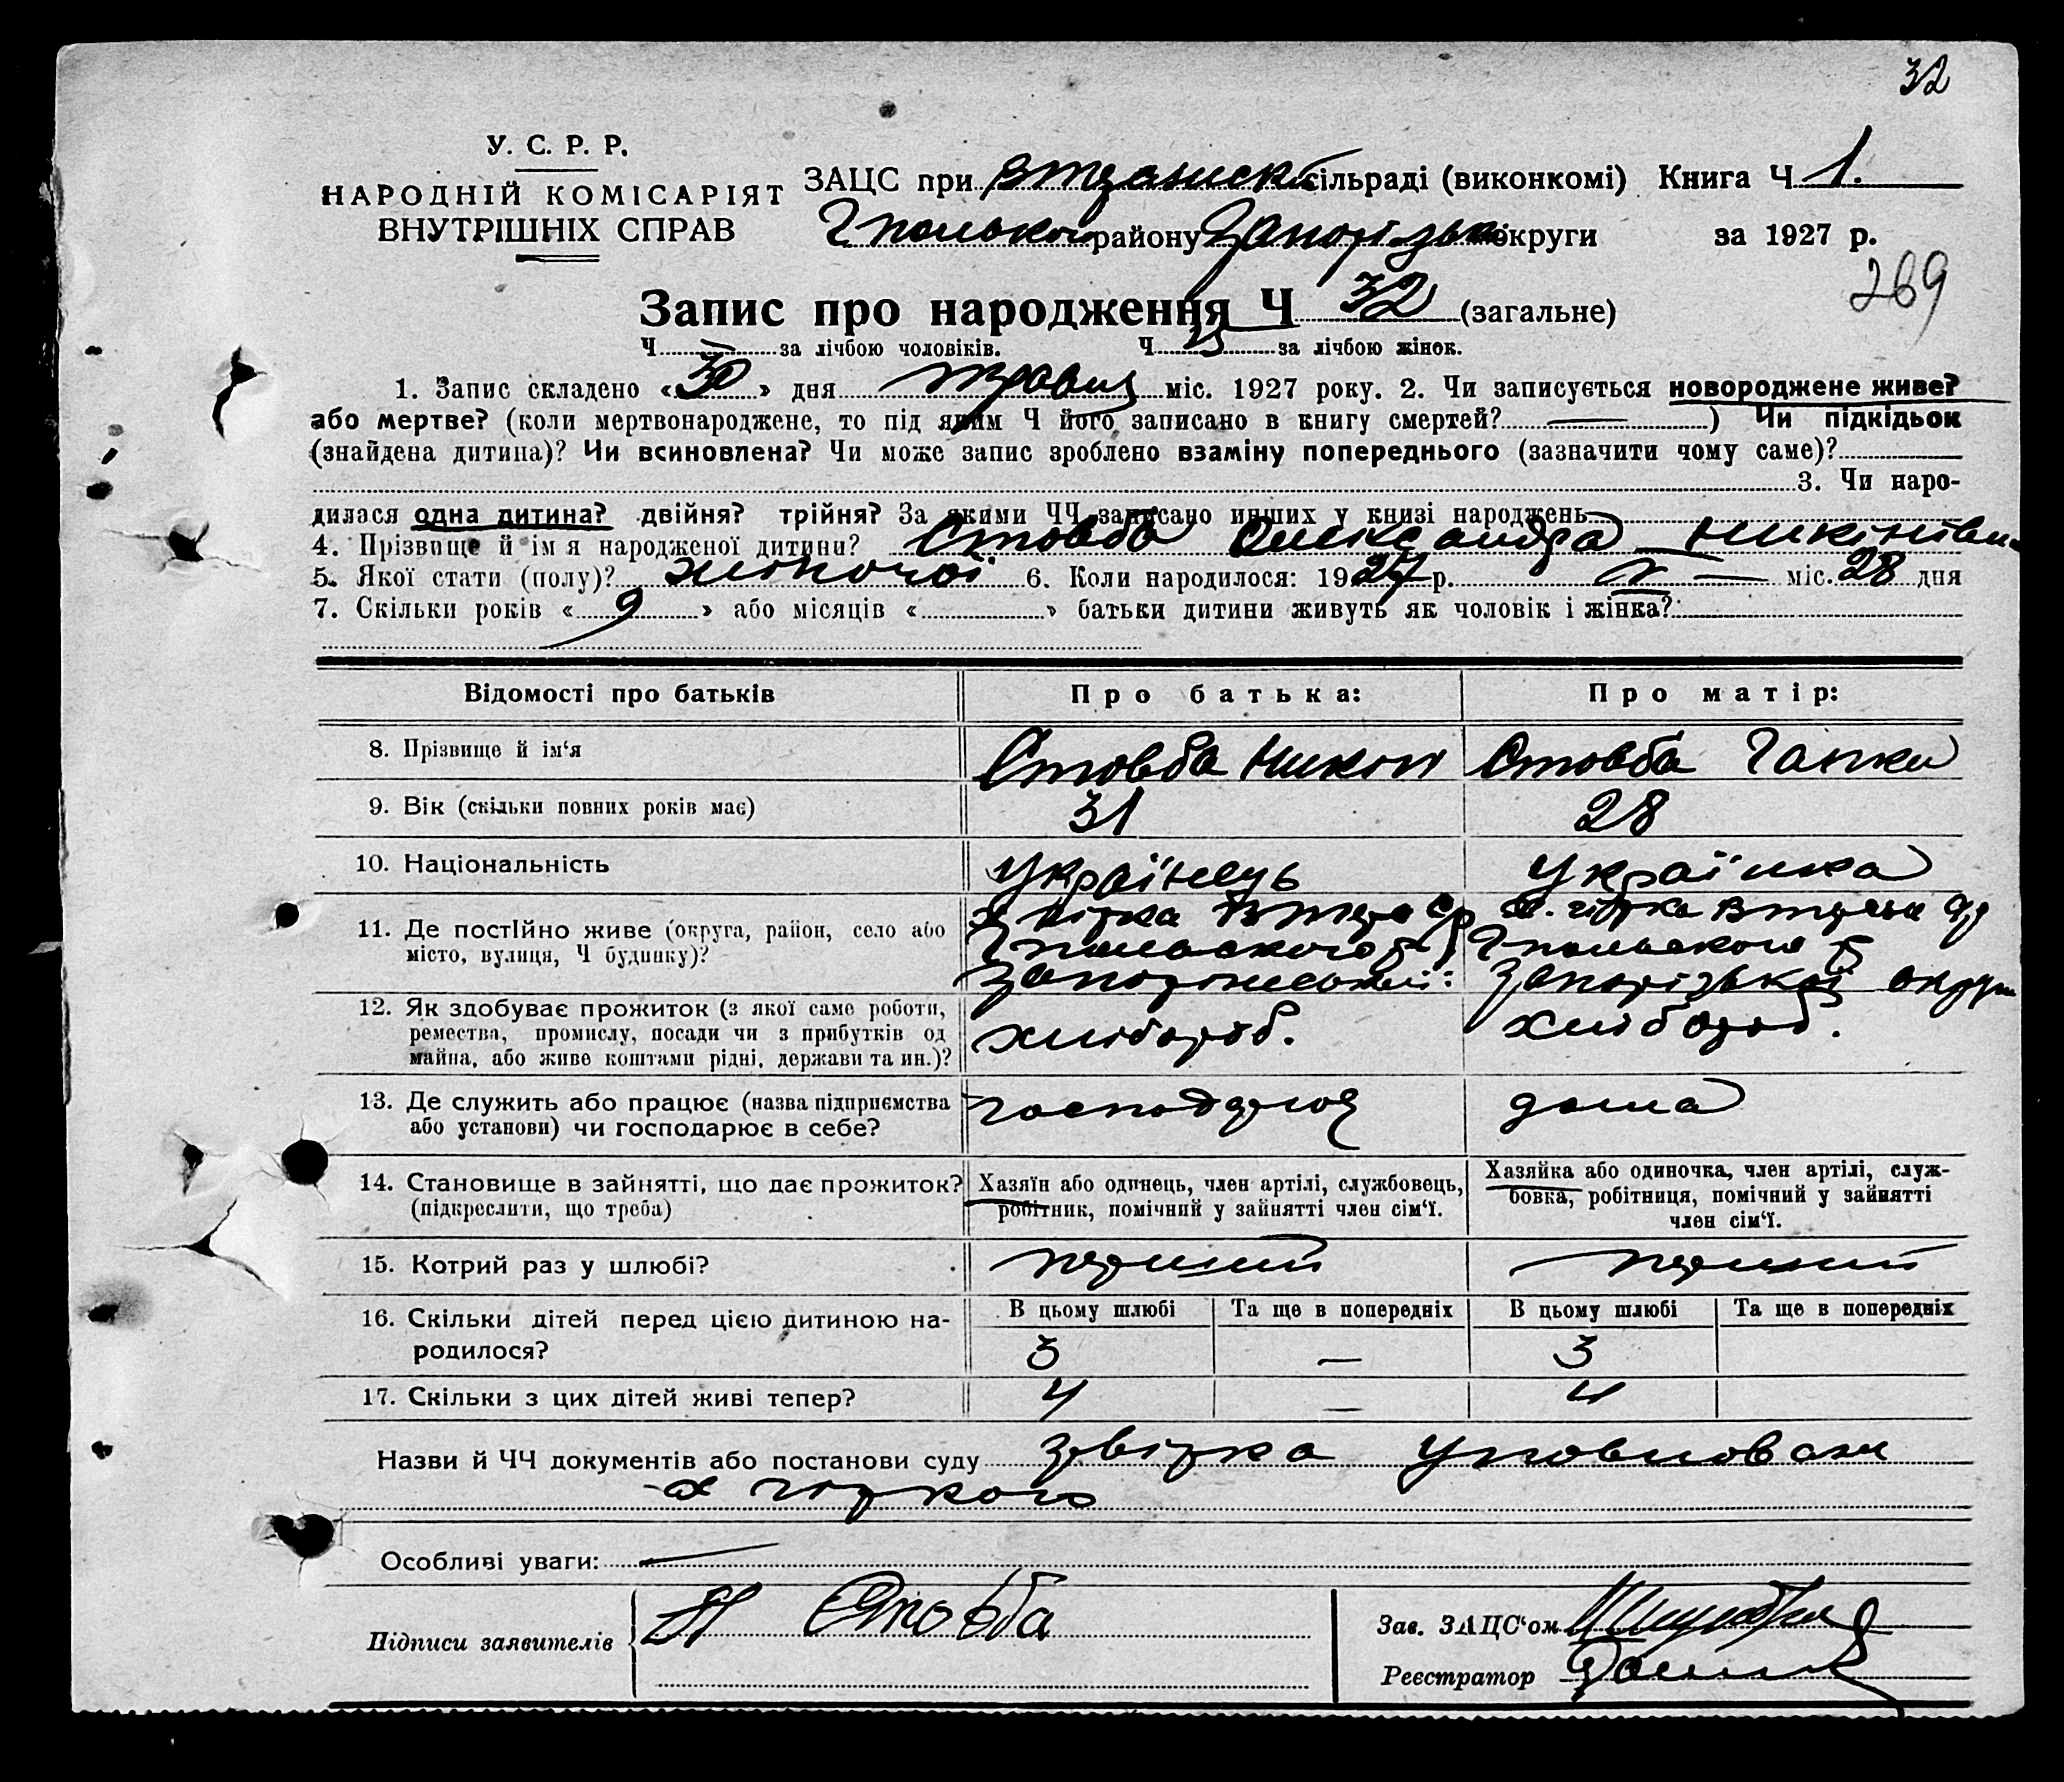 32
У. С. Р. Р.
НАРОДНІЙ КОМІСАРІЯТ
ВНУТРІШНІХ СПРАВ
ЗАЦС при сільраді (виконкомі) Книга Ч 1.
району округи за 1927 р.
269
Запис про народження Ч 32 (загальне)
Ч — за лічбою чоловіків. Ч за лічбою жінок.
1. Запис складено «30» дня травня міс. 1927 року. 2. Чи записується новороджене живе?
або мертве? (коли мертвонароджене, то під яким Ч його записано в книгу смертей? — ) Чи підкідьок
(знайдена дитина)? Чи всиновлена? Чи може запис зроблено взаміну попереднього (зазначити чому саме)?
3. Чи наро-
дилася одна дитина? двійня? трійня? За якими ЧЧ записано инших у книзі народжень
4. Прізвище й ім я народженої дитини? Стовба Олександра
5. Якої стати (полу)? жіночої 6. Коли народилося: 1927 р. V — міс. 28 дня
7. Скільки років « 9 » або місяців « » батьки дитини живуть як чоловік і жінка?:
Відомості про батьків Про батька: Про матір:
8. Прізвище й ім‘я Стовба Никон Стовба Гапка
9. Вік (скільки повних років має) 31 28
10. Національність Українець Українка
11. Де постійно живе (округа, район, село або
місто, вулиця, Ч будинку)?
Запорізької
12. Як здобуває прожиток (з якої саме роботи,
ремества, промислу, посади чи з прибутків од
майна, або живе коштами рідні, держави та ин.)? хлібороб. хлібороб.
13. Де служить або працює (назва підприємства
або установи) чи господарює в себе? дома
14. Становище в зайнятті, що дає прожиток? (підкреслити, що треба)
Хазяїн або одинець, член артілі, службовець,
робітник, помічний у зайнятті член сім‘ї.
Хазяйка або одиночка, член артілі, служ-
бовка, робітниця, помічний у зайнятті
член сім‘ї.
15. Котрий раз у шлюбі? перший перший
16. Скільки дітей перед цією дитиною на-
родилося?
В цьому шлюбі Та ще в попередніх В цьому шлюбі Та ще в попередніх
3 — 3
17. Скільки з цих дітей живі тепер? 4 — 4
Назви й ЧЧ документів або постанови суду
Особливі уваги: —
Підписи заявителів Н Стовба
Зав. ЗАЦС‘ом
Реєстратор